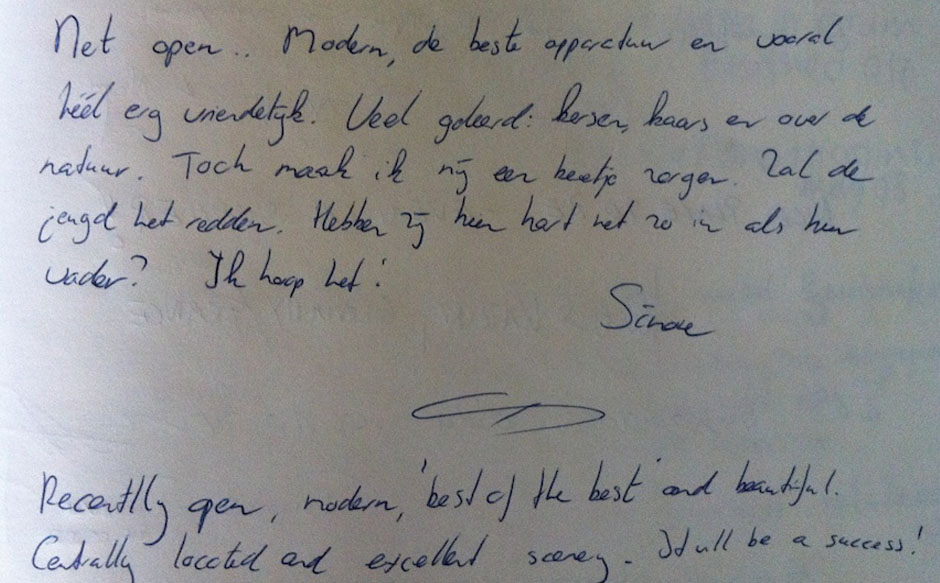 Net open.. Modern, de beste apparatuur en vooral
héél erg vriendelijk. Veel geleerd: kersen, kaars en over de
natuur. Toch maak ik mij een beetje zorgen. Zal de
jeugd het redden. Hebben zij hun hart net zo in als hun
vader? Ik hoop het!
Recently open, modern, 'best of the best' and beautiful.
Centrally located and excellent scenery. It will be a success!